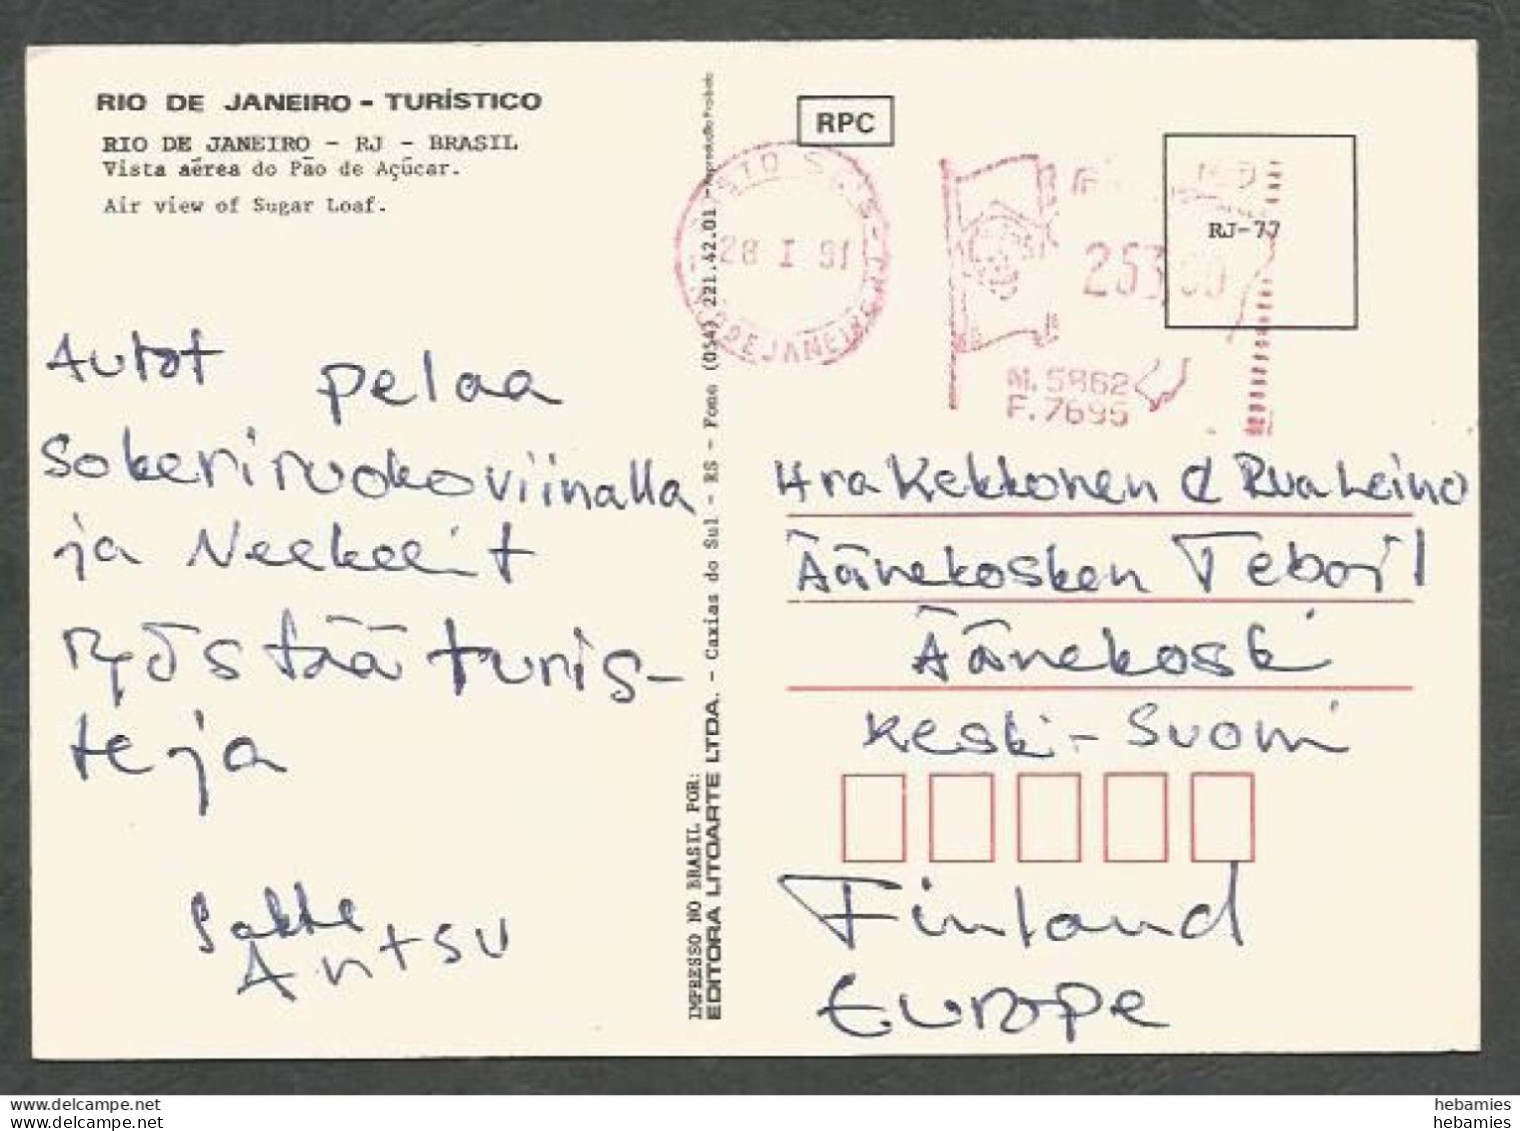 RIO DE JANEIRO - TURÍSTICO
RIO DE JANEIRO - RJ - BRASIL
Vista aérea do Pão de Açúcar.
Air view of Sugar Loaf.
Autot pelaa
sokeriruokoviinalla
ja Neekerit
ryöstää turis-
teja
Sakke
Antsu
IMPRESSO NO BRASIL POR:
EDITORA LITOARTE LTDA. - Caxias do Sul - RS - Fone (054) 221.42.01 - Reprodução Proibida
RPC
28 I 91
RIO DE JANEIRO RJ
253,00
RJ-77
M. 5862
F. 7695
Hra Kekkonen & Rva Leino
Äänekosken Teboil
Äänekoski
Keski-Suomi
Finland
Europe
hebamies
hebamies
hebamies
hebamies